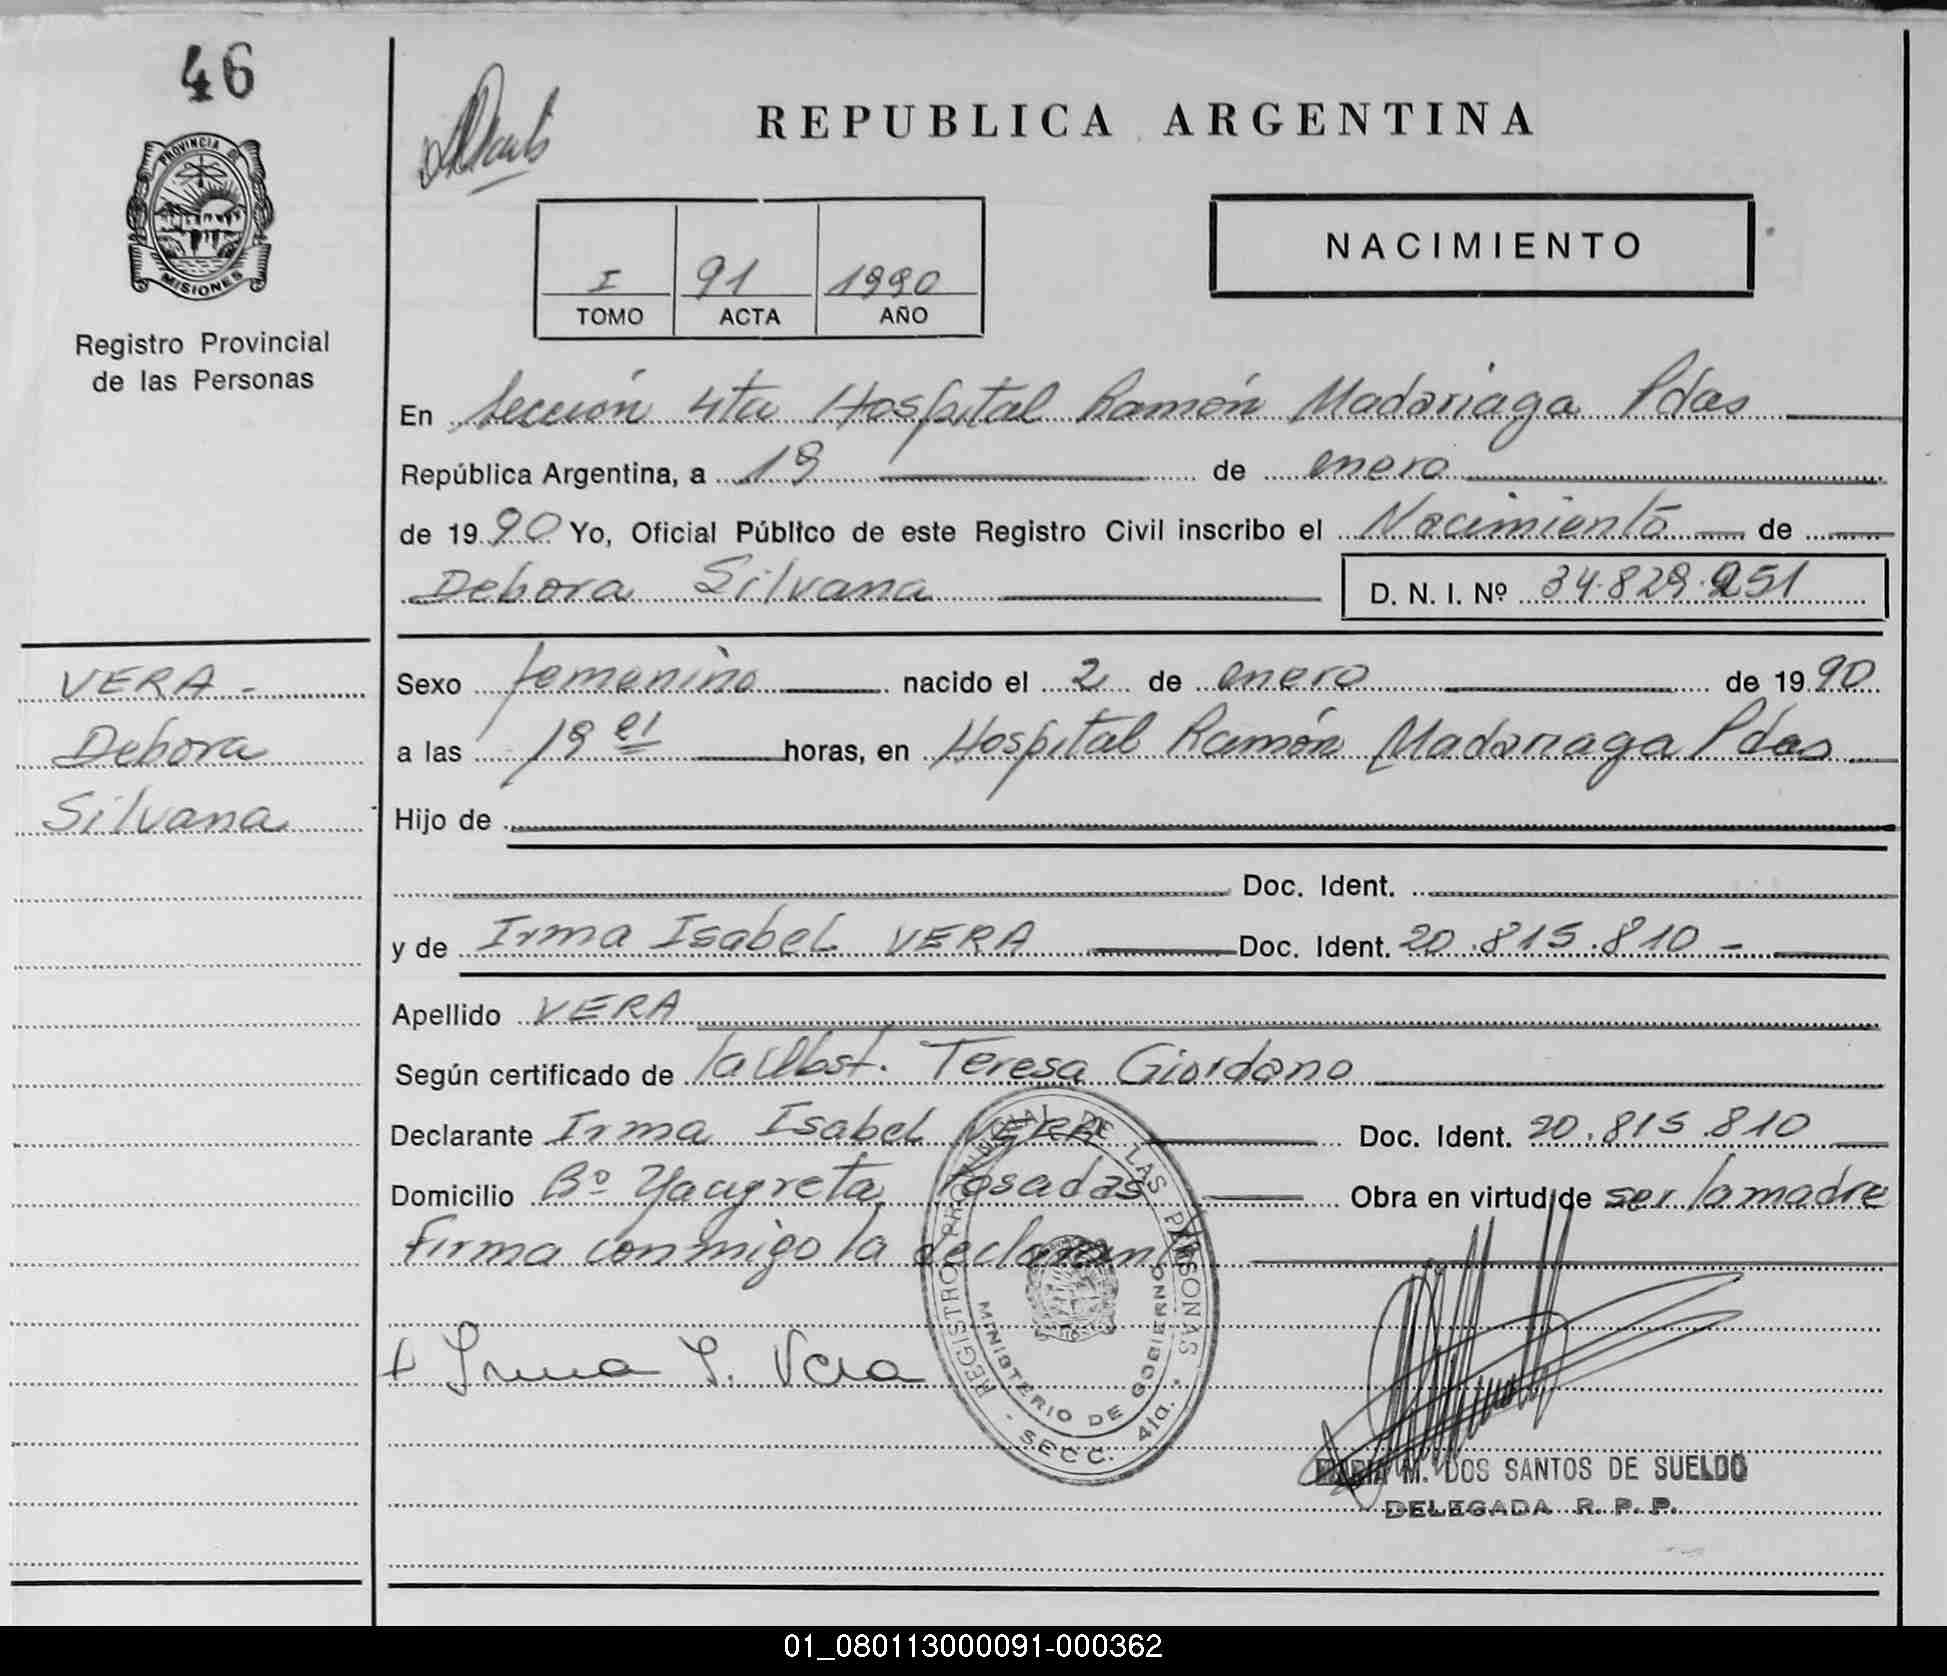 46
PROVINCIA DE
MISIONES
Registro Provincial
de las Personas
REPUBLICA ARGENTINA
NACIMIENTO
I 91 1990
TOMO ACTA AÑO
En Sección 4ta Hospital Ramón Madariaga Pdas
República Argentina, a 19 de enero
de 1990 Yo, Oficial Público de este Registro Civil inscribo el Nacimiento de
Debora Silvana D. N. I. Nº 34.829.251
VERA -
Debora
Silvana
Sexo femenino nacido el 2 de enero de 1990
a las 19 horas, en Hospital Ramón Madariaga Pdas
Hijo de
Doc. Ident.
y de Irma Isabel VERA Doc. Ident. 20.815.810 -
Apellido VERA
Según certificado de la Obst. Teresa Giordano
Declarante Irma Isabel VERA Doc. Ident. 20.815.810
Domicilio Bº Yacyreta Posadas Obra en virtud de ser la madre
Firma conmigo la declarante
+ Irma I. Vera
REGISTRO PROVINCIAL DE LAS PERSONAS
MINISTERIO DE GOBIERNO
- SECC. 4ta. -
MARIA M. DOS SANTOS DE SUELDO
DELEGADA R. P. P.
01_080113000091-000362